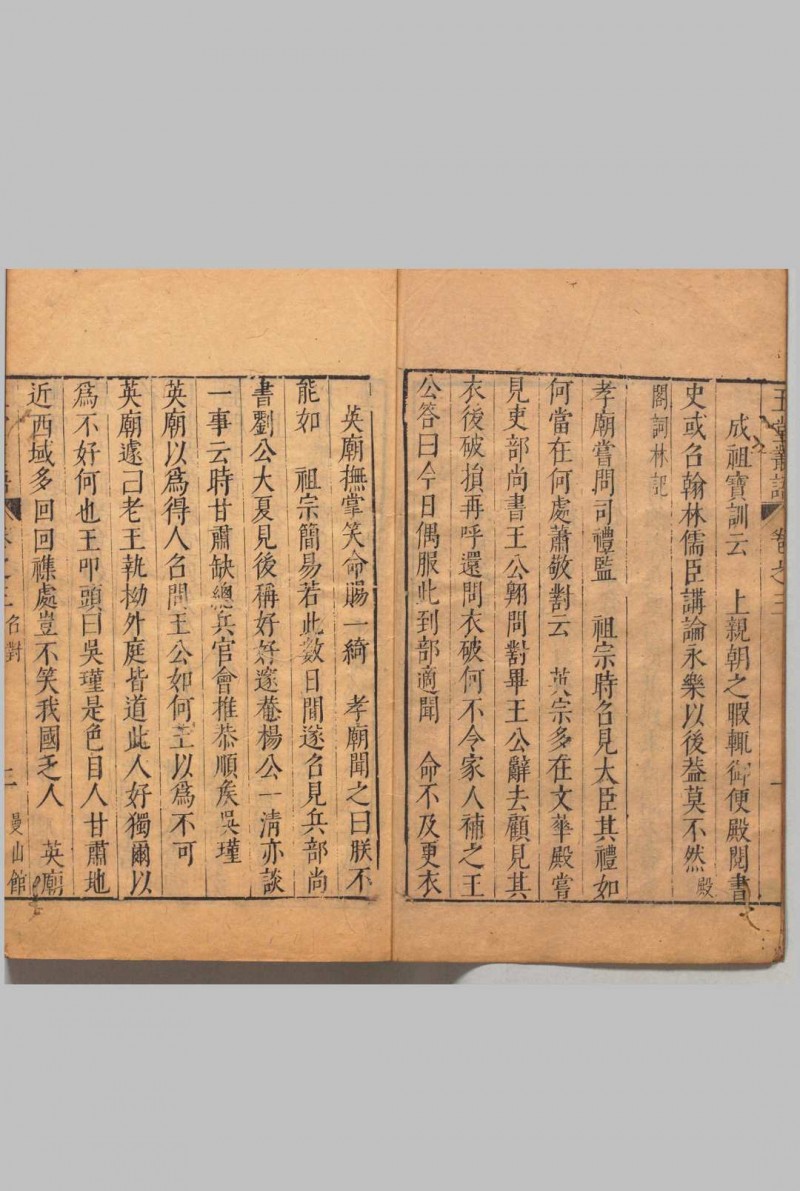 玉堂叢語　卷之三
成祖寶訓云　上親朝之暇輒御便殿閱書
史或召翰林儒臣講論永樂以後葢莫不然殿
閣詞林記
孝廟嘗問司禮監　祖宗時召見大臣其禮如
何當在何處蕭敬對云　英宗多在文華殿嘗
見吏部尚書王公翱問對畢王公辭去顧見其
衣後破損再呼還問衣破何不令家人補之王
公答曰今日偶服此到部適聞　命不及更衣
英廟撫掌笑命賜一綺　孝廟聞之曰朕不
能如　祖宗簡易若此數日間遂召見兵部尚
書劉公大夏見後稱好好邃菴楊公一清亦談
一事云時甘肅缺總兵官會推恭順矦吳瑾
英廟以爲得人召問王公如何王以爲不可
英廟遽曰老王執拗外庭皆道此人好獨爾以
爲不好何也王叩頭曰吳瑾是色目人甘肅地
近西域多回回襍處豈不笑我國乏人　英廟
卷之三　召對　三　曼山館